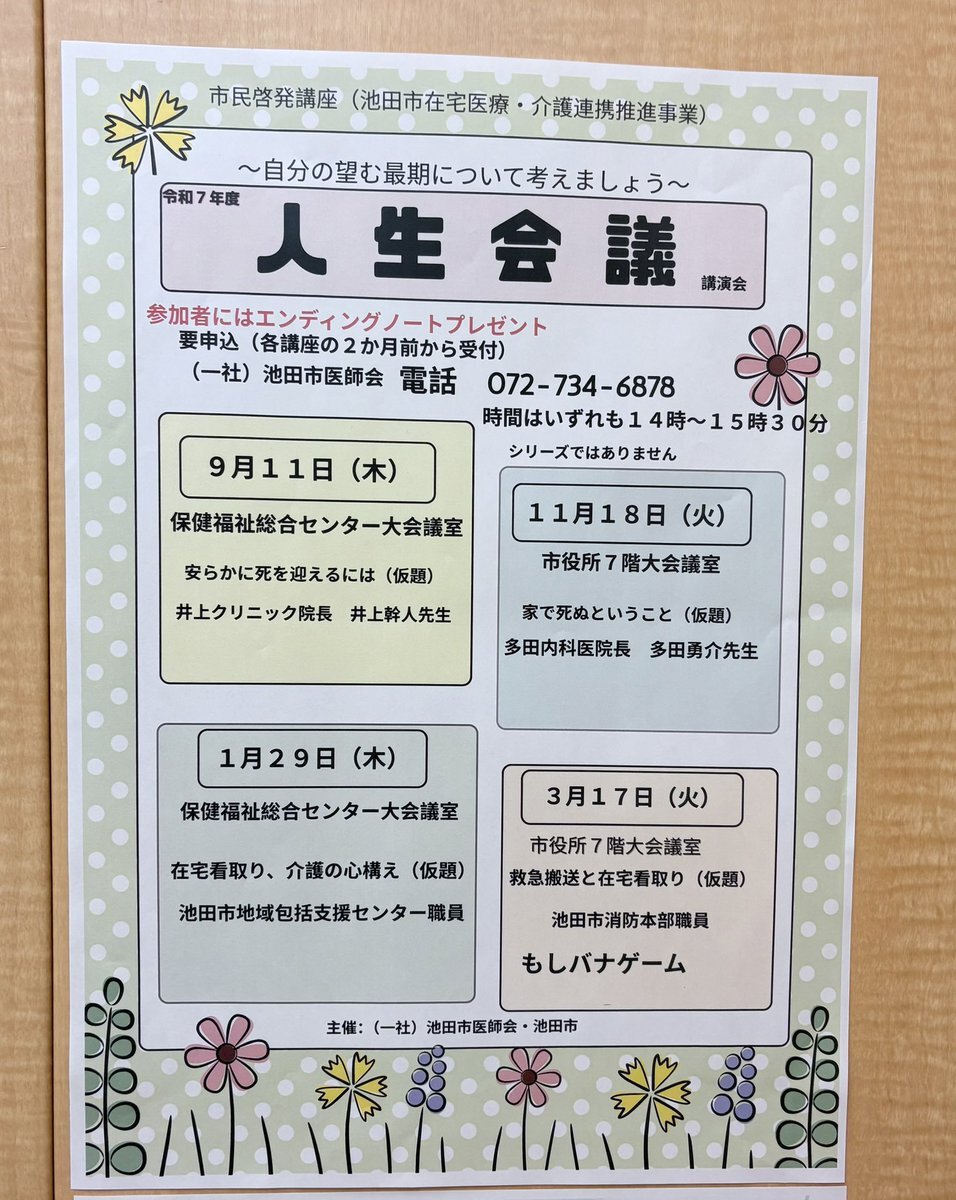 市民啓発講座（池田市在宅医療・介護連携推進事業）
～自分の望む最期について考えましょう～
令和７年度
人生会議
講演会
参加者にはエンディングノートプレゼント
要申込（各講座の２か月前から受付）
（一社）池田市医師会　電話　072-734-6878
時間はいずれも１４時～１５時３０分
シリーズではありません
９月１１日（木）
保健福祉総合センター大会議室
安らかに死を迎えるには（仮題）
井上クリニック院長　井上幹人先生
１１月１８日（火）
市役所７階大会議室
家で死ぬということ（仮題）
多田内科医院長　多田勇介先生
１月２９日（木）
保健福祉総合センター大会議室
在宅看取り、介護の心構え（仮題）
池田市地域包括支援センター職員
３月１７日（火）
市役所７階大会議室
救急搬送と在宅看取り（仮題）
池田市消防本部職員
もしバナゲーム
主催：（一社）池田市医師会・池田市